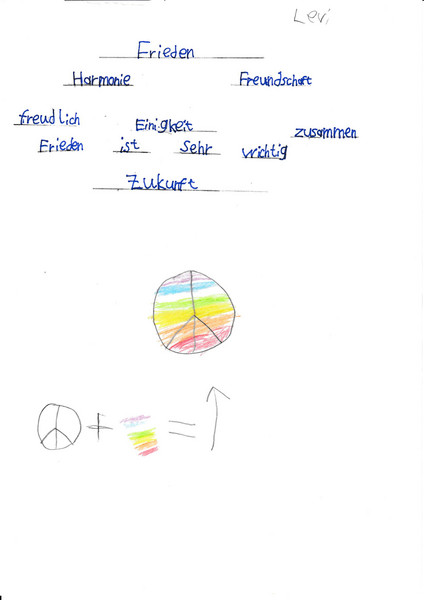 Levi
Frieden
Harmonie Freundschaft
freudlich Einigkeit zusammen
Frieden ist sehr wichtig
Zukunft